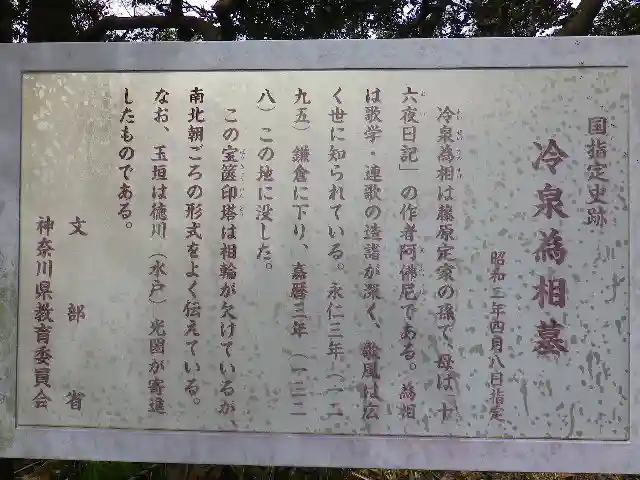 国指定史跡
冷泉為相墓
昭和三年四月八日指定
冷泉為相は藤原定家の孫で、母は「十
六夜日記」の作者阿佛尼である。為相
は歌学・連歌の造詣が深く、歌風は広
く世に知られている。永仁三年（一二
九五）鎌倉に下り、嘉暦三年（一三二
八）この地に没した。
この宝篋印塔は相輪が欠けているが、
南北朝ごろの形式をよく伝えている。
なお、玉垣は徳川（水戸）光圀が寄進
したものである。
文部省
神奈川県教育委員会